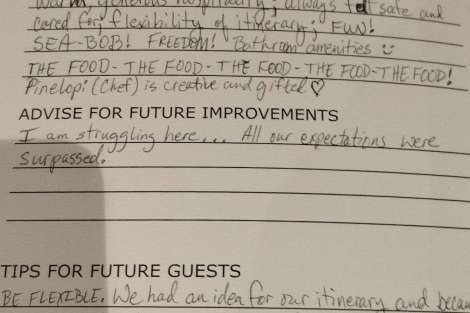 warm, generous hospitality; always felt safe and
cared for; flexibility of itinerary; FUN!
SEA-BOB! FREEDOM! Bathroom amenities
THE FOOD - THE FOOD - THE FOOD - THE FOOD - THE FOOD!
Pinelopi (Chef) is creative and gifted
ADVISE FOR FUTURE IMPROVEMENTS
I am struggling here... All our expectations were
surpassed.
TIPS FOR FUTURE GUESTS
BE FLEXIBLE. We had an idea for our itinerary and becau